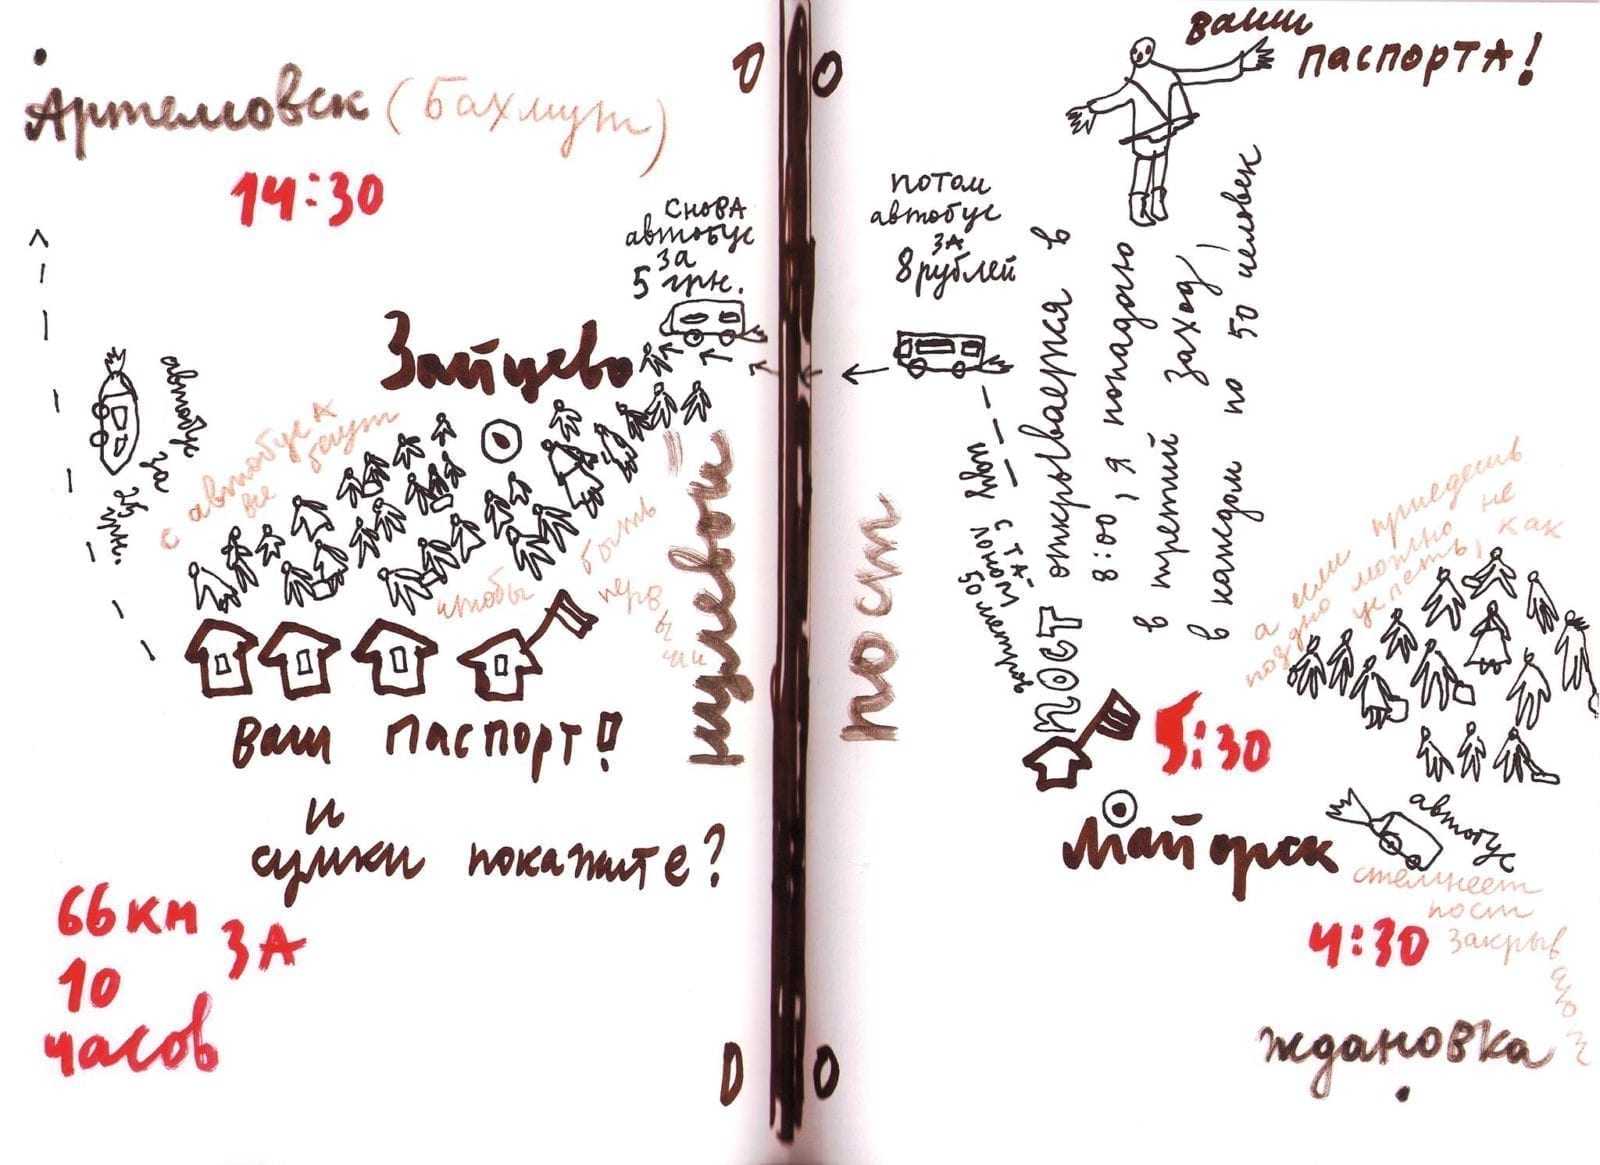 Артемовск (Бахмут)
14:30
снова
автобус
за
5 грн.
Зайцево
автобус
за
с автобуса
все бегут
чтобы
быть
первыми
Ваш паспорт!
и
сумки покажите?
66 км
за
10
часов
нулевой
пост
0
0
0
0
ваши
паспорта!
потом
автобус
за
8 рублей
иду с та-
локом
50 метров
ПОСТ
открывается в
8:00, я попадаю
в третий заход,
в каждом по 50 человек
а если приедешь
поздно можно не
успеть, как
5:30
Майорск
автобус
стемнеет
пост
закрывают
4:30
Ждановка